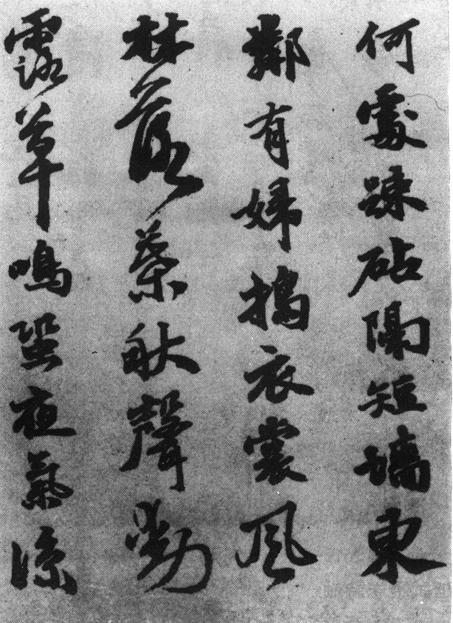 何處踈砧隔短墻東
鄰有婦搗衣裳風
林落葉秋聲動
露草鳴蛩夜氣涼